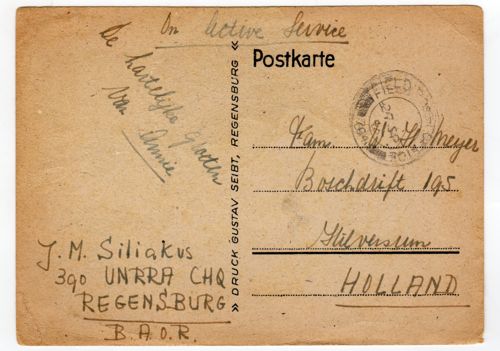 On Active Service
De hartelijke groeten
van Annie
J. M. Siliakus
390 UNRRA CHQ
REGENSBURG
B.A.O.R.
» DRUCK GUSTAV SEIBT, REGENSBURG «
Postkarte
FIELD POST OFFICE
Fam. Meyer
Boschdrift 195
Hilversum
HOLLAND